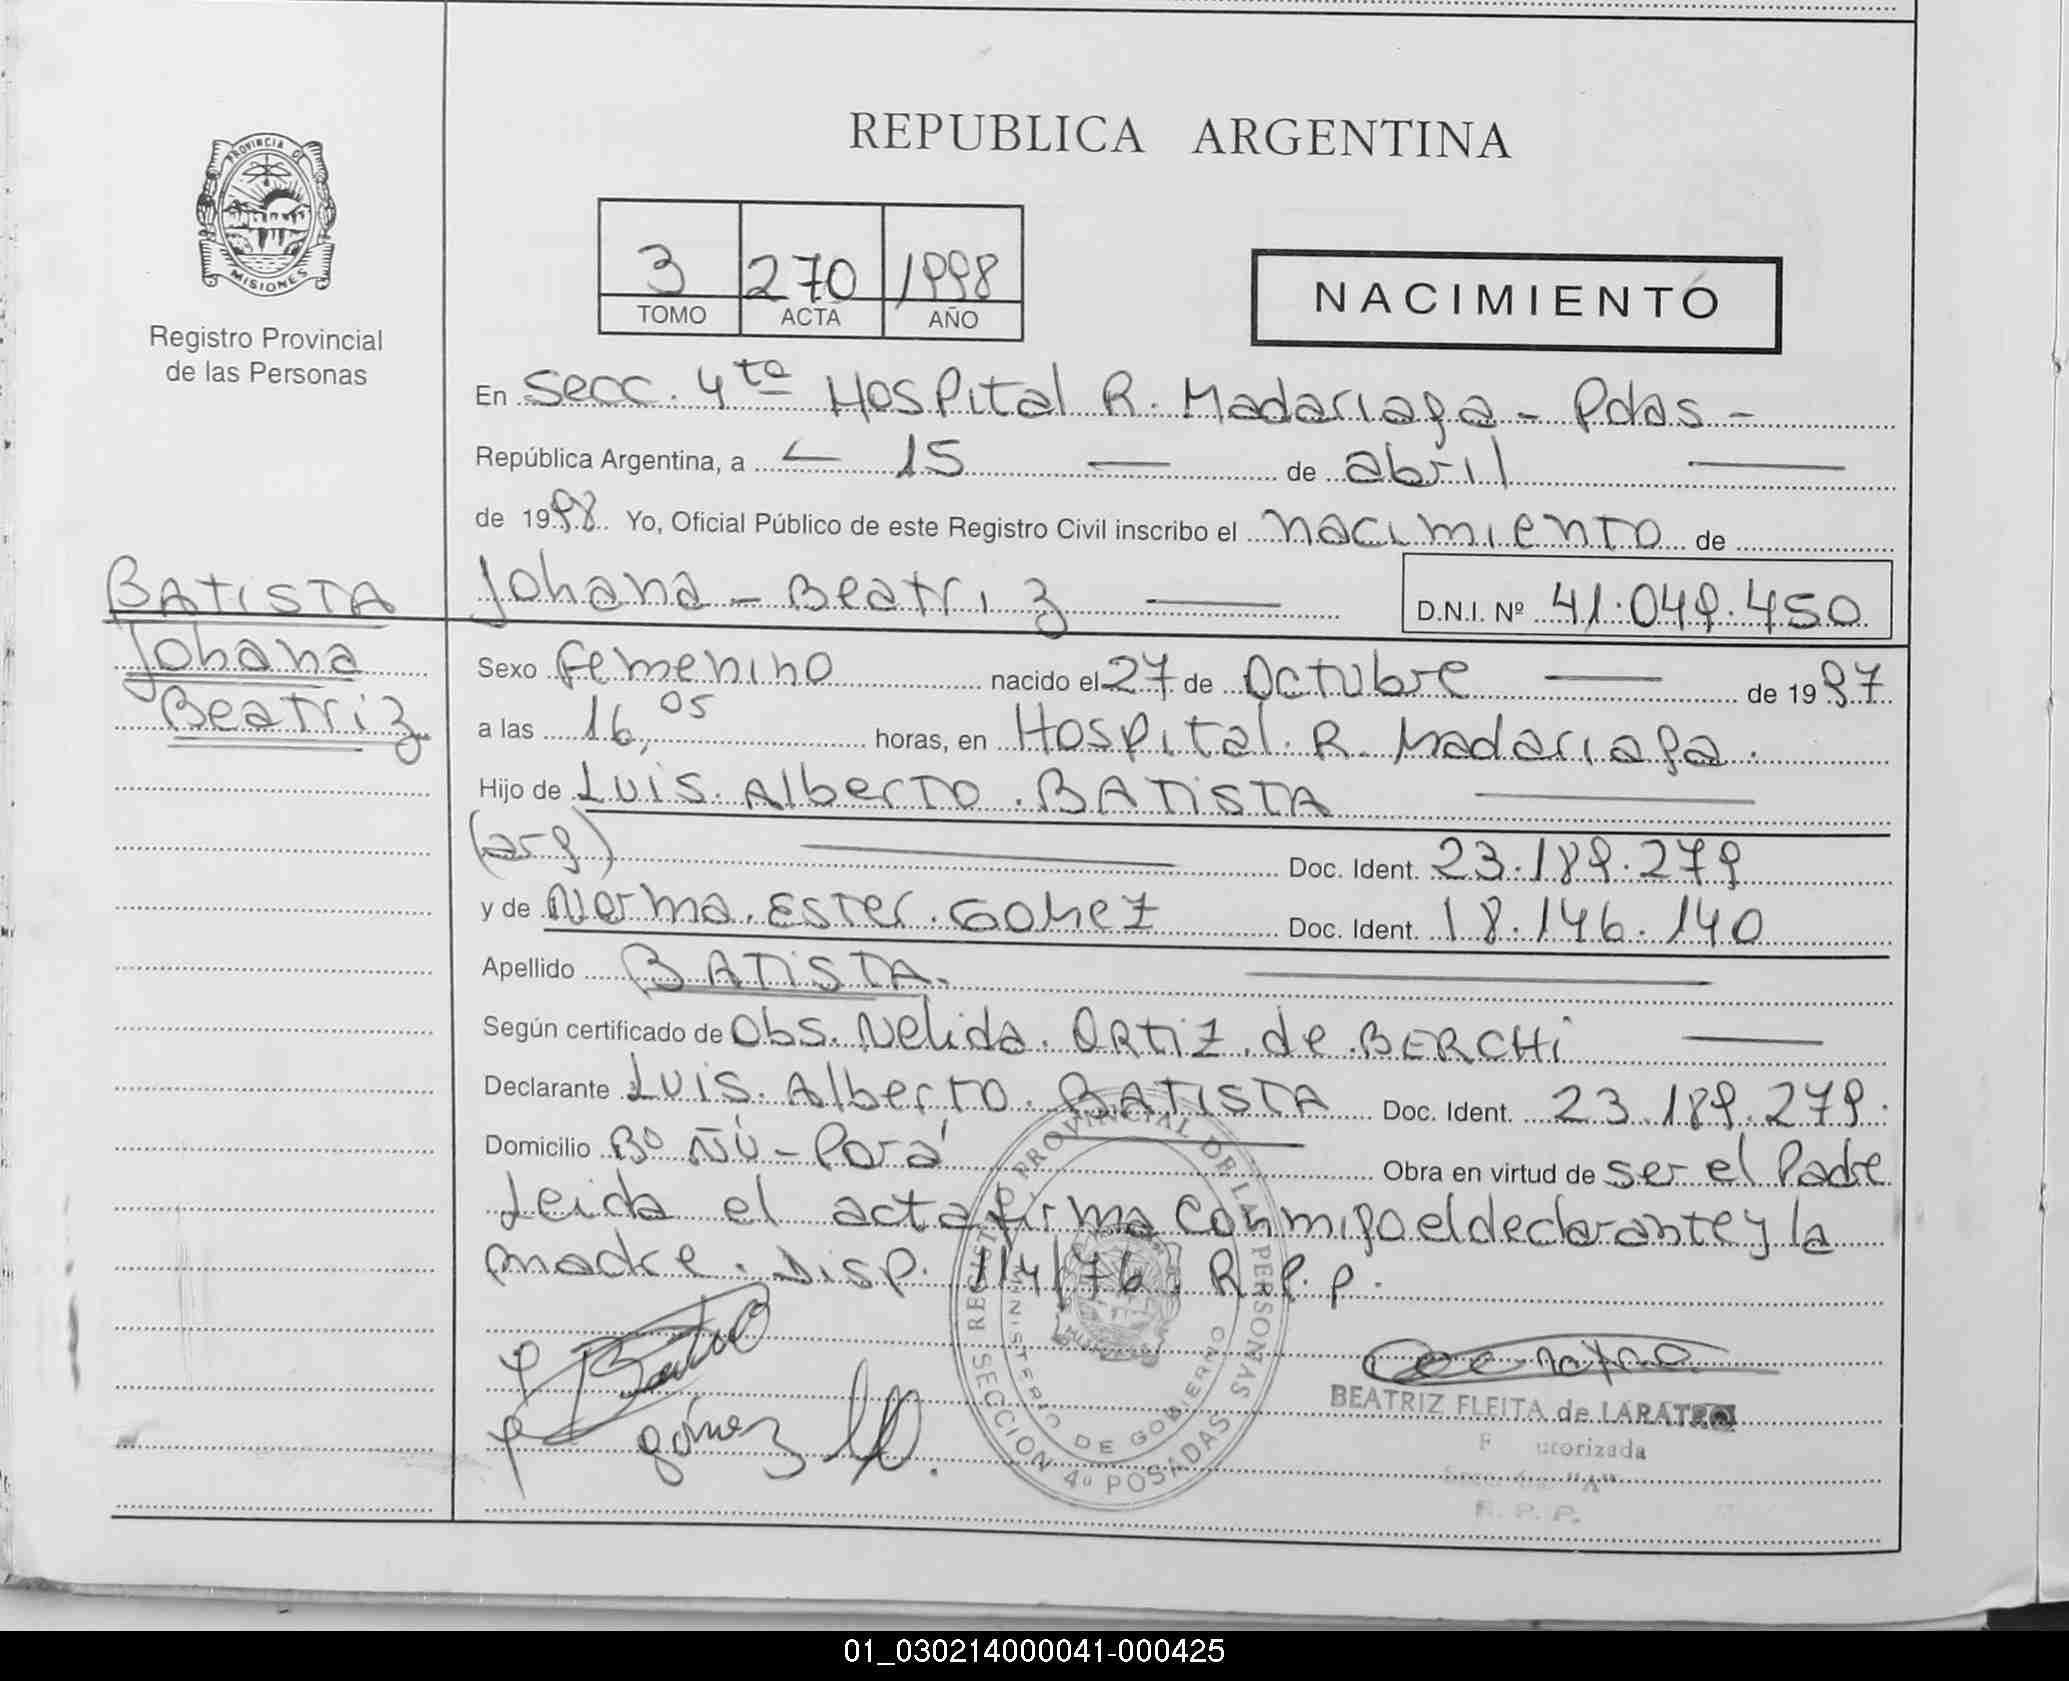 REPUBLICA ARGENTINA
PROVINCIA DE
MISIONES
Registro Provincial
de las Personas
3 270 1998
TOMO ACTA AÑO
NACIMIENTO
En Secc. 4ta Hospital R. Madariaga - Pdas -
República Argentina, a 15 de abril
de 1998 Yo, Oficial Público de este Registro Civil inscribo el nacimiento de
Johana - Beatriz D.N.I. Nº 41.049.450
BATISTA
Johana
Beatriz
Sexo femenino nacido el 27 de Octubre de 1997
a las 16,05 horas, en Hospital. R. Madariaga.
Hijo de Luis. Alberto. BATISTA
(arg) Doc. Ident. 23.189.279
y de Norma. Ester. Gomez Doc. Ident. 18.146.140
Apellido BATISTA.
Según certificado de Obs. Nelida. Ortiz. de. BERCHi
Declarante Luis. Alberto. BATISTA Doc. Ident. 23.189.279.
Domicilio Bº Ñú - Porá Obra en virtud de ser el Padre
Leida el acta firma conmigo el declarante y la
madre. Disp. 114/76. R.P.P.
REGISTRO PROVINCIAL DE LAS PERSONAS
MINISTERIO DE GOBIERNO
SECCION 4º POSADAS
MISIONES
gómez
BEATRIZ FLEITA de LARATRO
utorizada
"A"
R. P. P.
01_030214000041-000425